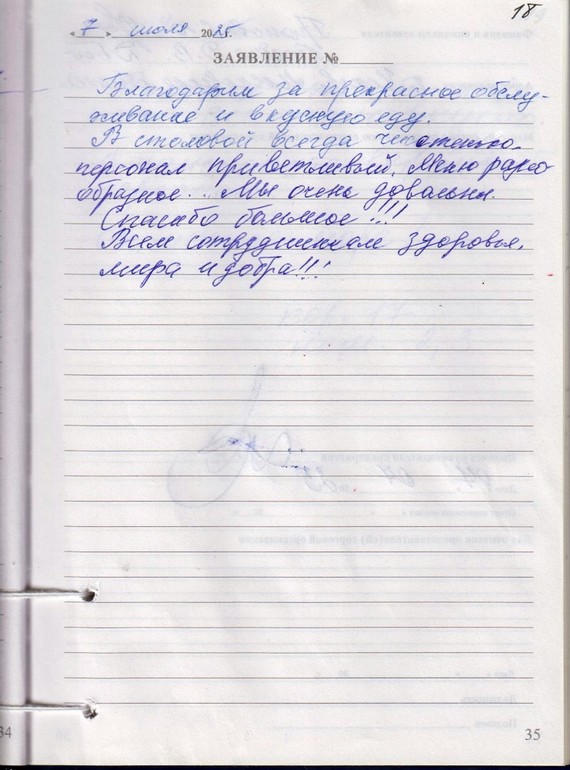 18
« 7 » июля 2025г.
ЗАЯВЛЕНИЕ №
Благодарим за прекрасное обслу-
живание и вкусную еду.
В столовой всегда чистенько.
персонал приветливый. Меню разно
образное... Мы очень довольны.
Спасибо большое!!!
Всем сотрудникам здоровья,
мира и добра!!!
34
35